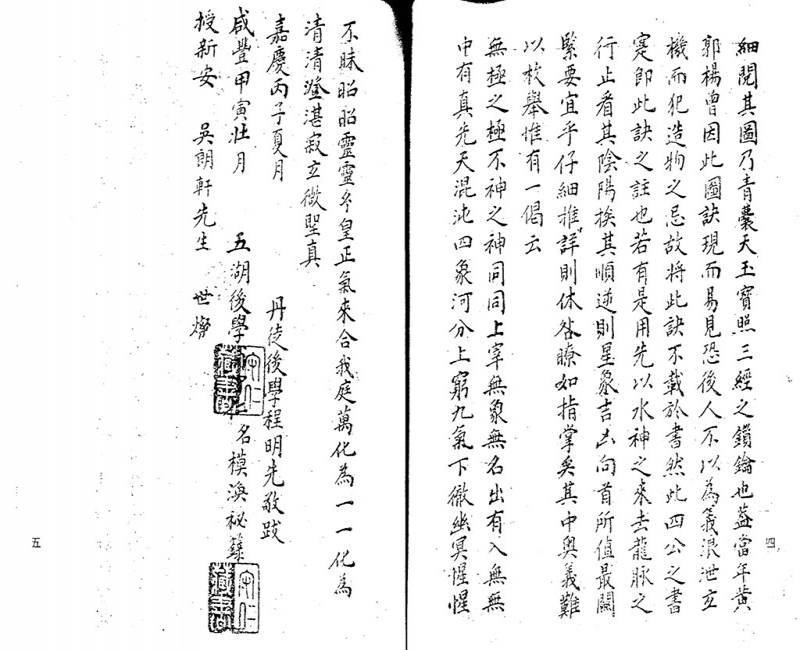 細閱其圖乃青囊天玉寶照三經之鎖鑰也蓋當年黃
郭楊曾因此圖訣現而易見恐後人不以為義浪泄玄
機而犯造物之忌故將此訣不載於書然此四公之書
寔即此訣之註也若有是用先以水神之來去龍脉之
行止看其陰陽挨其順逆則星象吉凶向首所值最關
緊要宜乎仔細推詳則休咎瞭如指掌矣其中奧義難
以枚舉惟有一偈云
無極之極不神之神同同上宰無象無名出有入無無
中有真先天混沌四象河分上窮九氣下徹幽冥惺惺
四
不昧昭昭靈靈皇正氣來合我庭萬化為一一化為
清清澄湛寂立徵聖真
嘉慶丙子夏月 丹徒後學程明先敬跋
咸豐甲寅壯月 五湖後學 名模渙祕錄
授新安 吳朗軒先生 世
五